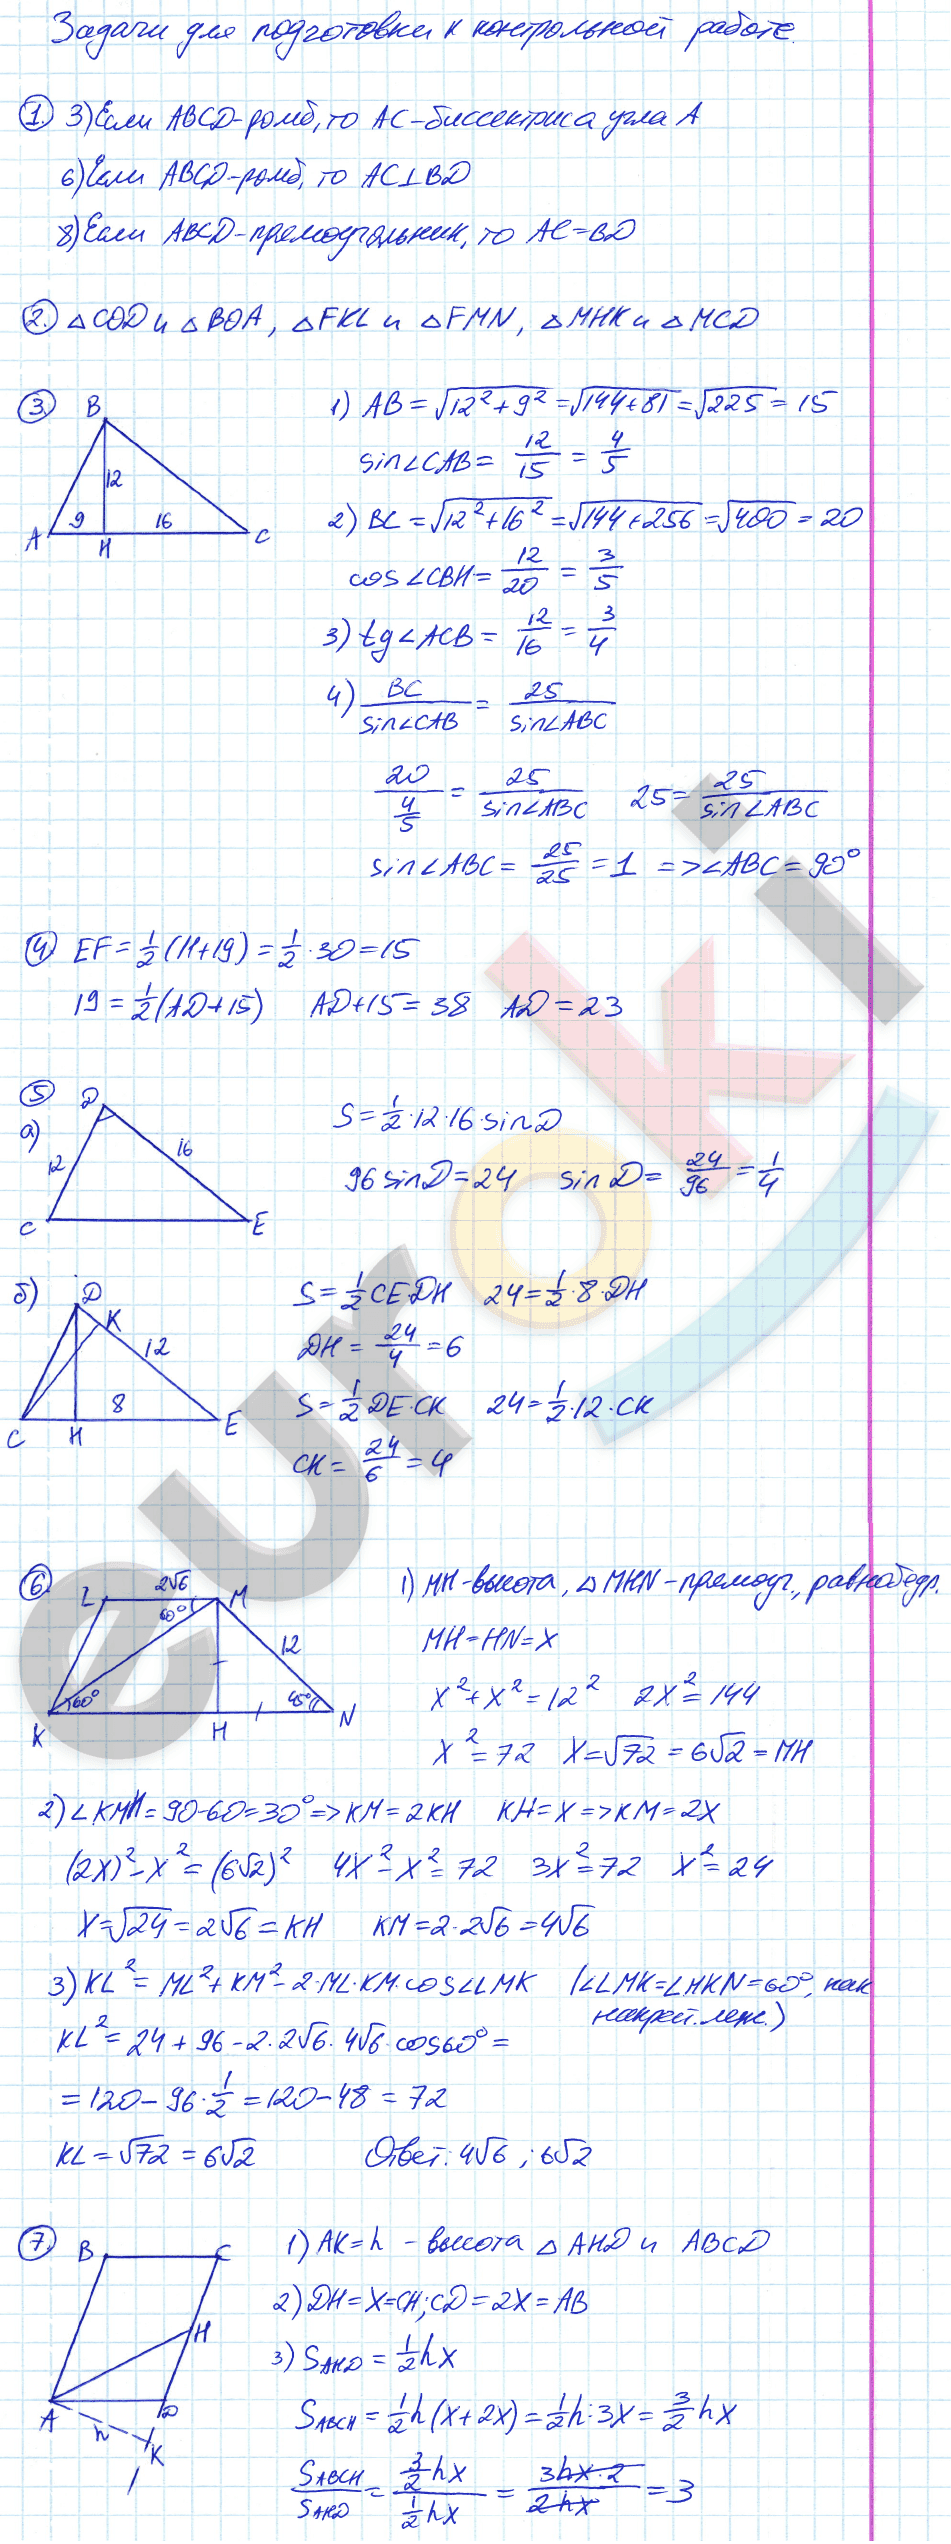 Задачи для подготовки к контрольной работе.
1. 3) Если ABCD-ромб, то AC-биссектриса угла A
6) Если ABCD-ромб, то AC⊥BD
8) Если ABCD-прямоугольник, то AC=BD
2. △COD и △BOA, △FKL и △FMN, △MHK и △MCD
3. B 12 9 16 A H C
1) AB = √(12²+9²) = √(144+81) = √225 = 15
sin∠CAB = 12/15 = 4/5
2) BC = √(12²+16²) = √(144+256) = √400 = 20
cos∠CBH = 12/20 = 3/5
3) tg∠ACB = 12/16 = 3/4
4) BC/sin∠CAB = 25/sin∠ABC
20/(4/5) = 25/sin∠ABC 25 = 25/sin∠ABC
sin∠ABC = 25/25 = 1 => ∠ABC = 90°
4. EF = 1/2(11+19) = 1/2·30 = 15
19 = 1/2(AD+15) AD+15 = 38 AD = 23
5
а) D 12 16 C E
S = 1/2·12·16·sin D
96 sin D = 24 sin D = 24/96 = 1/4
б) D K 12 8 C H E
S = 1/2 CE·DH 24 = 1/2·8·DH
DH = 24/4 = 6
S = 1/2 DE·CK 24 = 1/2·12·CK
CK = 24/6 = 4
6. L 2√6 M 60° 12 60° 45° K H N
1) MH-высота, △MHN-прямоуг., равнобедр.
MH = HN = X
X²+X² = 12² 2X² = 144
X² = 72 X = √72 = 6√2 = MH
2) ∠KMH = 90-60 = 30° => KM = 2KH KH = X => KM = 2X
(2X)² - X² = (6√2)² 4X² - X² = 72 3X² = 72 X² = 24
X = √24 = 2√6 = KH KM = 2·2√6 = 4√6
3) KL² = ML² + KM² - 2·ML·KM·cos∠LMK (∠LMK = ∠MKN = 60°, как
накрест. леж.)
KL² = 24 + 96 - 2·2√6·4√6·cos60° =
= 120 - 96·1/2 = 120 - 48 = 72
KL = √72 = 6√2 Ответ: 4√6; 6√2
7. B C H A D h K
1) AK = h - высота △AHD и ABCD
2) DH = X = CH; CD = 2X = AB
3) S_AHD = 1/2 hX
S_ABCH = 1/2 h(X+2X) = 1/2 h·3X = 3/2 hX
S_ABCH/S_AHD = (3/2 hX)/(1/2 hX) = (3hX·2)/(2hX) = 3
euroki